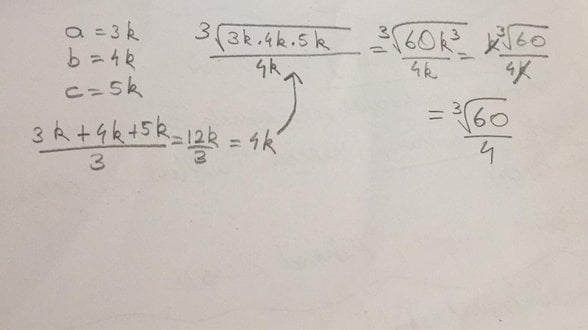 a = 3k
b = 4k
c = 5k
3√(3k.4k.5k) / 4k = 3√(60k³) / 4k = k 3√60 / 4k
= 3√60 / 4
3k + 4k + 5k / 3 = 12k / 3 = 4k